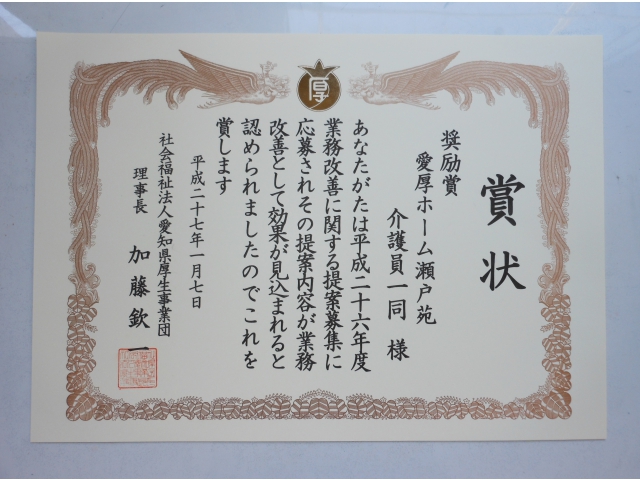 厚
賞状
奨励賞
愛厚ホーム瀬戸苑
介護員一同 様
あなたがたは平成二十六年度
業務改善に関する提案募集に
応募されその提案内容が業務
改善として効果が見込まれると
認められましたのでこれを
賞します
平成二十七年一月七日
社会福祉法人愛知県厚生事業団
理事長 加藤欽一